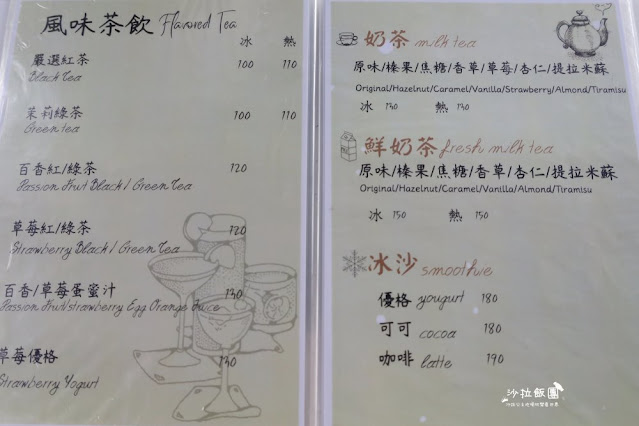 風味茶飲 Flavored Tea
冰 熱
嚴選紅茶 100 110
Black Tea
茉莉綠茶 100 110
Green tea
百香紅/綠茶 120
Passion Fruit Black / Green Tea
草莓紅/綠茶 120
Strawberry Black / Green Tea
百香/草莓蛋蜜汁 130
Passion Fruit/strawberry Egg Orange Juice
草莓優格 130
Strawberry Yogurt
奶茶 milk tea
原味/榛果/焦糖/香草/草莓/杏仁/提拉米蘇
Original/Hazelnut/Caramel/Vanilla/Strawberry/Almond/Tiramisu
冰 130 熱 130
鮮奶茶 fresh milk tea
原味/榛果/焦糖/香草/杏仁/提拉米蘇
Original/Hazelnut/Caramel/Vanilla/Almond/Tiramisu
冰 150 熱 150
冰沙 smoothie
優格 yougurt 180
可可 cocoa 180
咖啡 latte 190
沙拉飯團